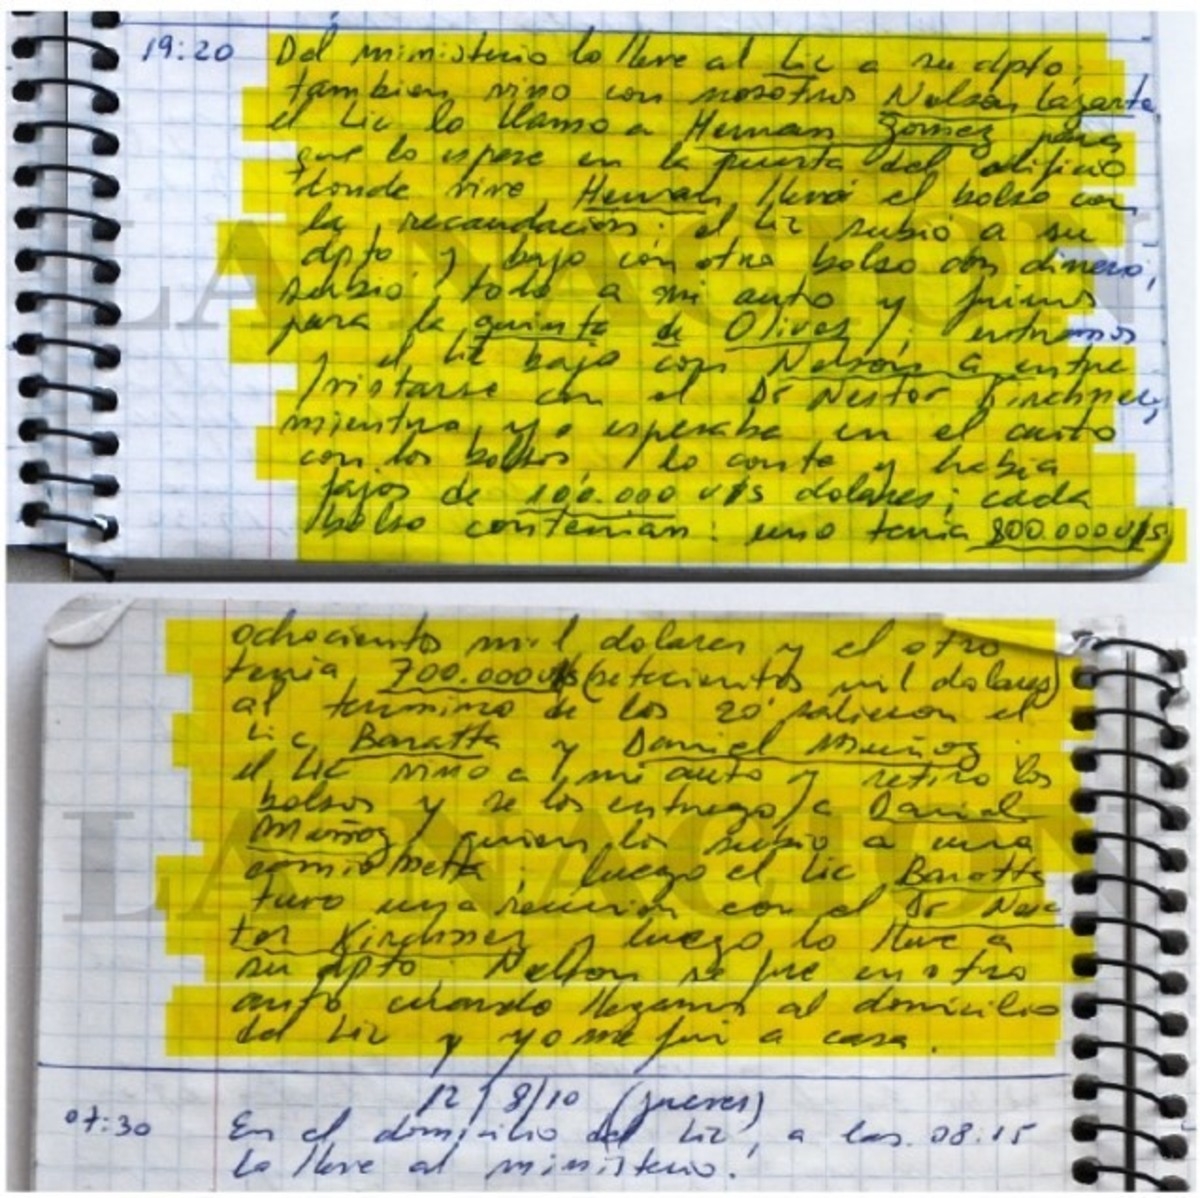 19:20 Del ministerio lo lleve al Lic a su dpto;
tambien vino con nosotros Nelson Lazarte
el Lic lo llamo a Hernan Gomez para
que lo espere en la puerta del edificio
donde vive Hernan llevó el bolso con
la recaudacion; el Lic subio a su
dpto y bajo con otro bolso con dinero,
subio todo a mi auto y fuimos
para la quinta de Olivos; entramos
y el Lic bajo con Nelson a entre
vistarse con el Dr Nestor Kirchner,
mientras yo esperaba en el auto
con los bolsos, lo conte y habia
fajos de 100.000 u$s dolares; cada
bolso contenian: uno tenia 800.000 u$s
ochocientos mil dolares y el otro
tenia 700.000 u$s (setecientos mil dolares)
al termino de los 20' salieron el
Lic Baratta y Daniel Muñoz
el Lic vino a mi auto y retiro los
bolsos y se los entrego a Daniel
Muñoz quien los subio a una
camioneta; luego el Lic Baratta
tuvo una reunion con el Dr Nes
tor Kirchner y luego lo lleve a
su dpto. Nelson se fue en otro
auto cuando llegamos al domicilio
del Lic y yo me fui a casa.
12/8/10 (jueves)
07:30 En el domicilio del Lic, a las 08:15
lo lleve al ministerio.
LA NACION
LA NACION